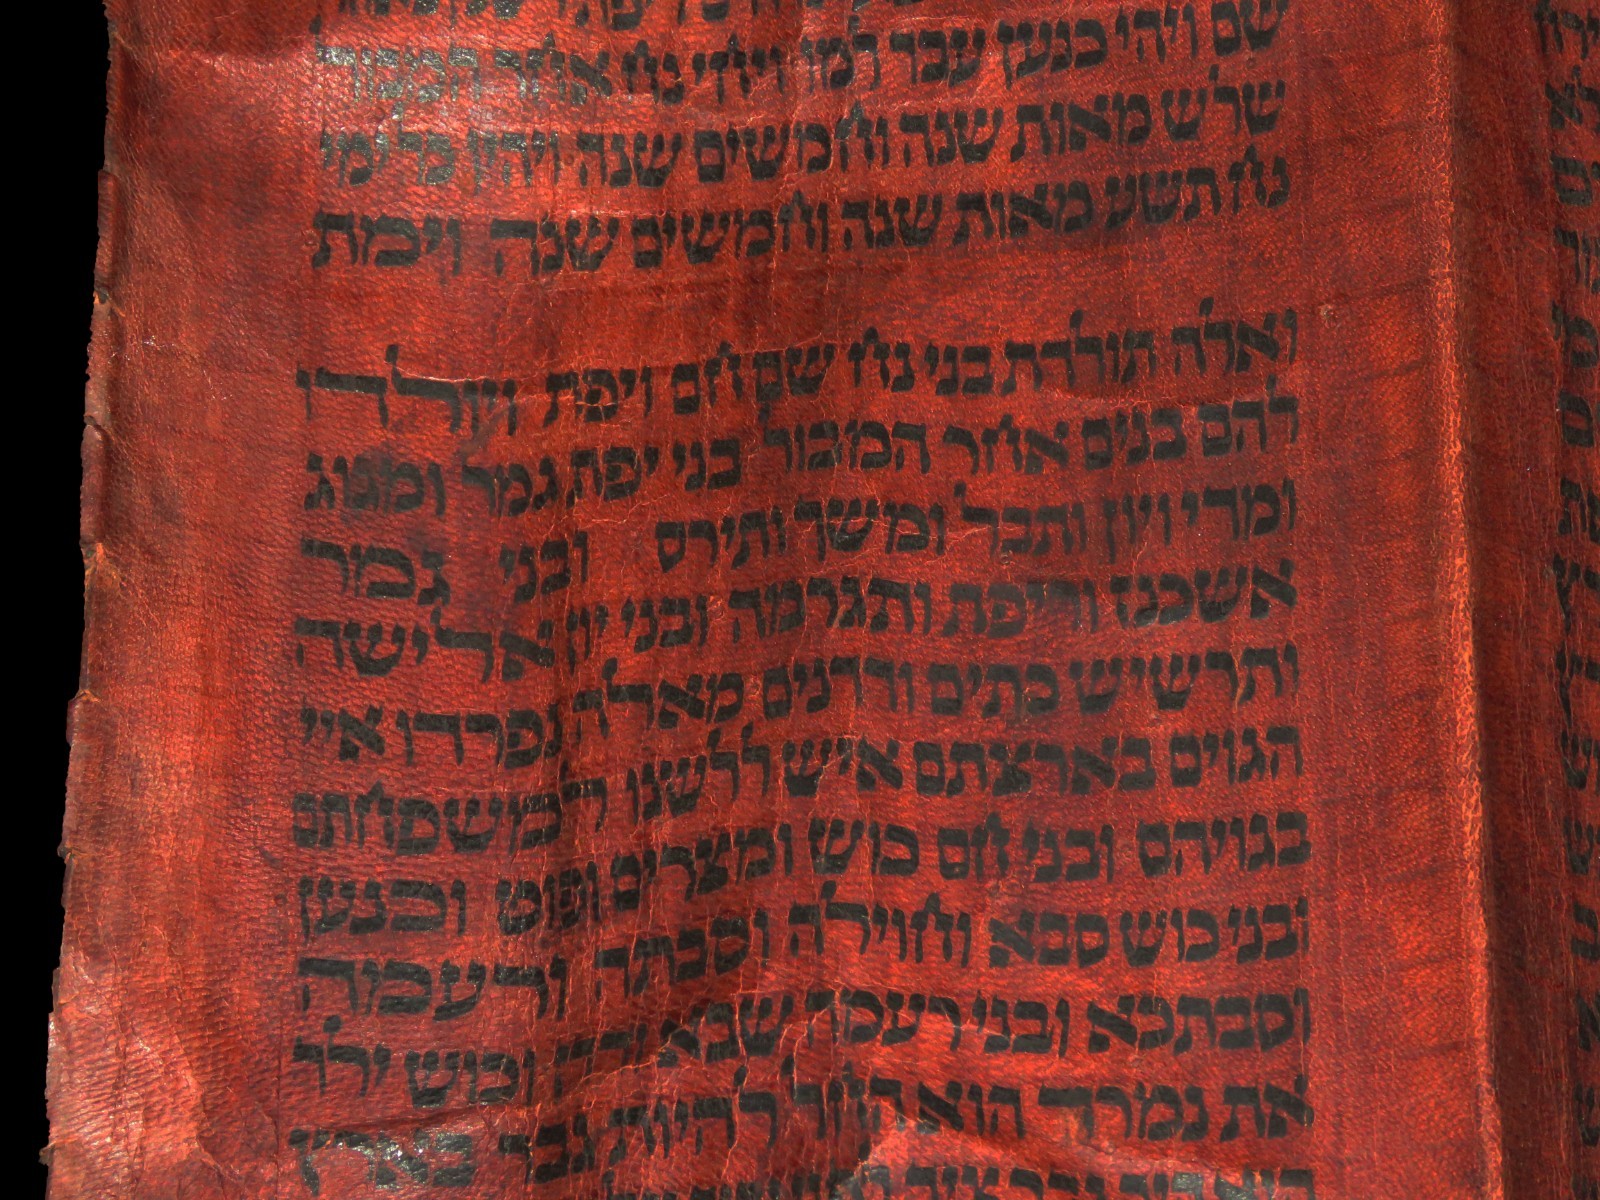 שם ויהי כנען עבד למו ויחי נח אחר המבול
שלש מאות שנה וחמשים שנה ויהיו כל ימי
נח תשע מאות שנה וחמשים שנה וימת
ואלה תולדת בני נח שם חם ויפת ויולדו
להם בנים אחר המבול בני יפת גמר ומגוג
ומדי ויון ותבל ומשך ותירס ובני גמר
אשכנז וריפת ותגרמה ובני יון אלישה
ותרשיש כתים ודדנים מאלה נפרדו איי
הגוים בארצתם איש ללשנו למשפחתם
בגויהם ובני חם כוש ומצרים ופוט וכנען
ובני כוש סבא וחוילה וסבתה ורעמה
וסבתכא ובני רעמה שבא ודדן וכוש ילד
את נמרד הוא החל להיות גבר בארץ